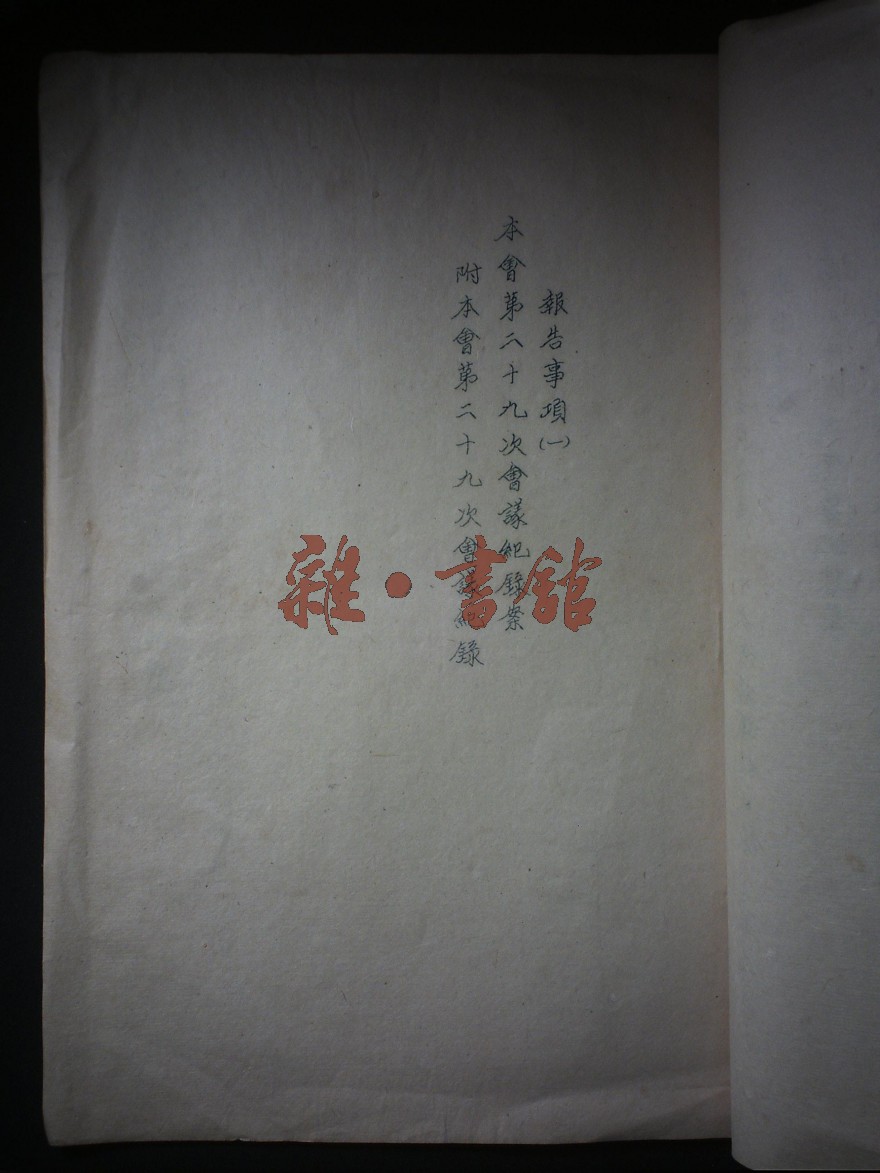 報告事項(一)
本會第二十九次會議紀錄案
附本會第二十九次會議紀錄
雜·書館